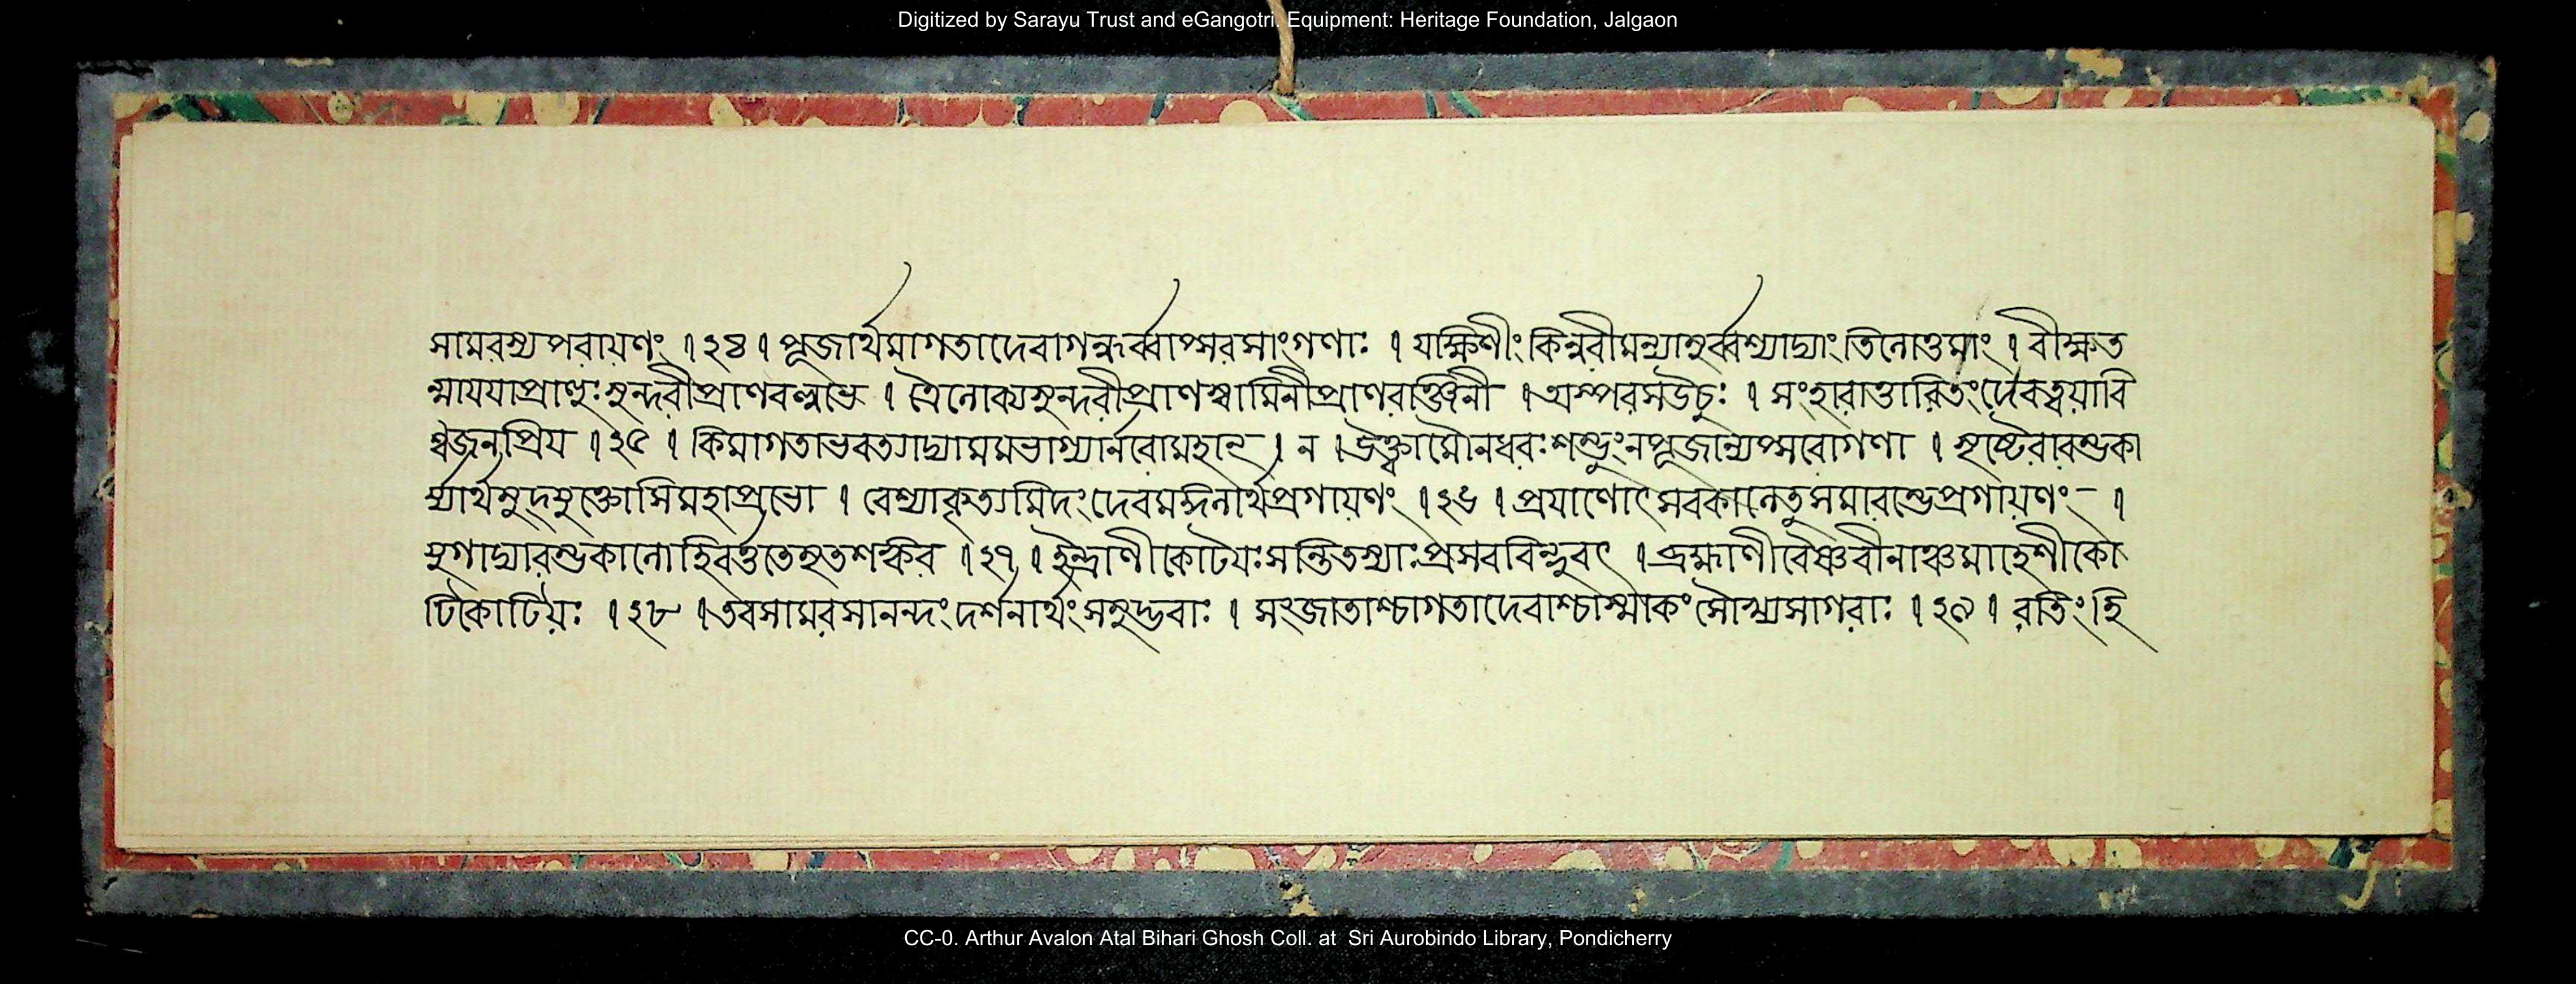 Digitized by Sarayu Trust and eGangotri. Equipment: Heritage Foundation, Jalgaon
সামরস্যপরায়ণং । ২৪ । পূজার্থমাগতাদেবাগন্ধর্ব্বাপ্সরসাংগণাঃ । যক্ষিণীং কিন্নরীমন্যামুর্ব্বশ্যাদ্যাং তিলোত্তমাং । বীক্ষ্যত
সুন্দরীপ্রাণবল্লভে । ত্রৈলোক্যসুন্দরীপ্রাণস্বামিনীপ্রাণরঞ্জিনী । অপ্সরসউচুঃ । সংহারাত্তারিতং
জনপ্রিয় । ২৫ । কিমাগতাভবত্যাদ্যামমভাগ্যার্নবোমহান্ । ন । উক্ত্বামৌনধরঃশম্ভুং নপূজান্যপ্সরোগণা ।
মহাপ্রভো । বেশ্যাবৃত্যমিদং দেবমন্দিনার্থপ্রগায়ণং । ২৬ । প্রযাণোৎসবকালেতুসমারম্ভেপ্রগায়ণং - ।
। ২৭ । ইন্দ্রাণীকোটয়ঃসন্তিতস্যাঃপ্রসববিন্দুবৎ । ব্রহ্মাণীবৈষ্ণবীনাঞ্চমাহেশীকো
টিকোটিয়ঃ । ২৮ । তবসামরসানন্দং দর্শনার্থং সমুদ্ভবাঃ । সংজাতাশ্চাগতাদেবাশ্চাস্মাকং সৌখ্যসাগরাঃ । ২৯ । রতিং হি
CC-0. Arthur Avalon Atal Bihari Ghosh Coll. at Sri Aurobindo Library, Pondicherry